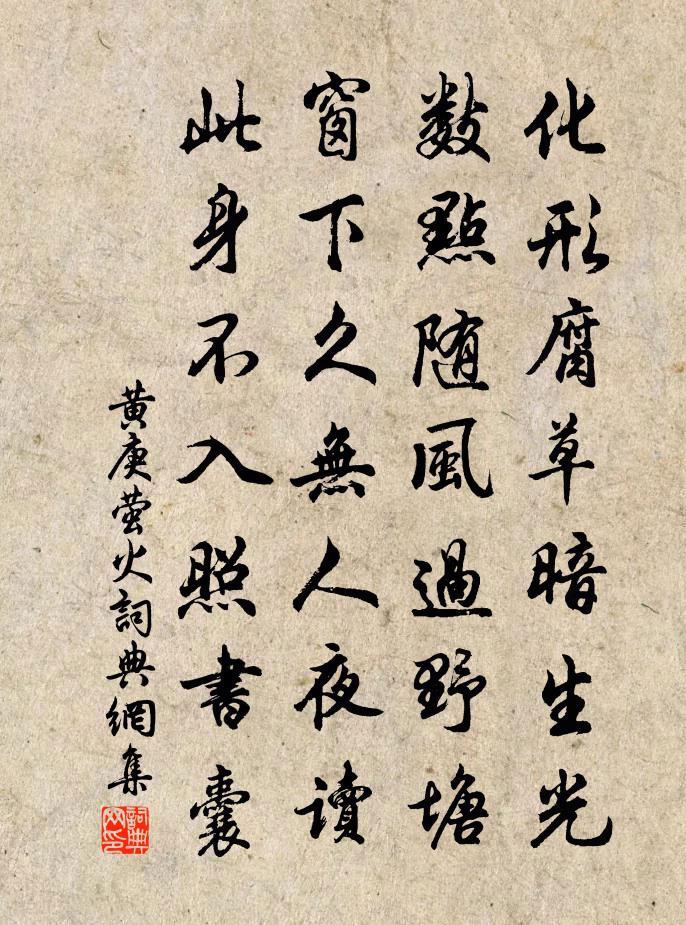 化形腐草暗生光
數點随風過野塘
窗下久無人夜讀
此身不入照書囊
黄庚萤火詞典網集
詞典网印